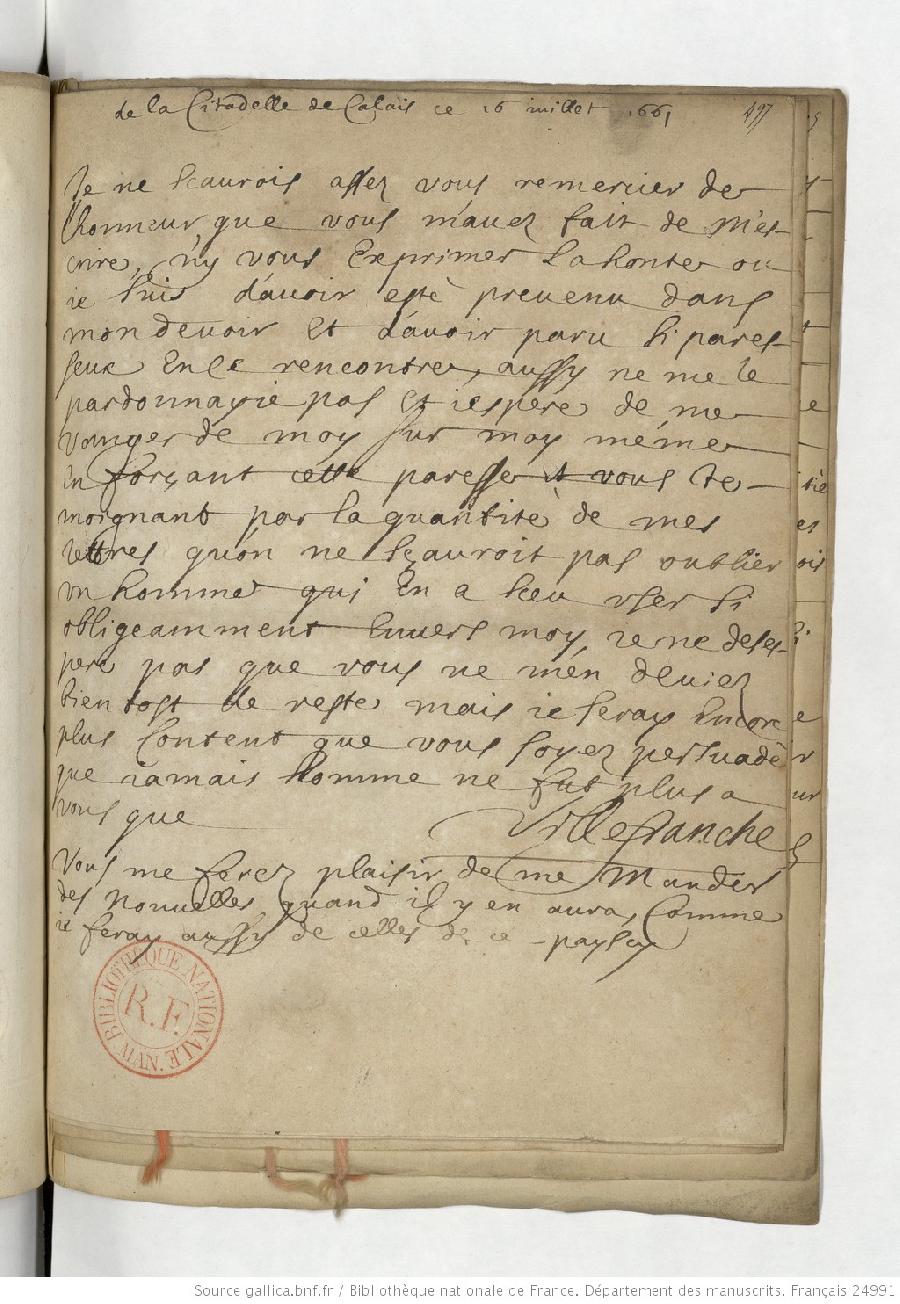 de la Citadelle de Calais ce 16 juillet 1661
497
Je ne scaurois assez vous remercier de
lhonneur que vous mauez fait de m'es
crire, n'y vous exprimer la honte ou
ie suis d'auoir esté preuenu dans
mon deuoir et d'auoir paru si pares
seux en ce rencontre, aussy ne me le
pardonnayie pas et iespere de me
vanger de moy sur moy méme
en forçant cette paresse et vous te-
moignant par la quantité de mes
lettres qu'on ne sçauroit pas oublier
vn homme qui en a sceu vser si
obligeamment enuers moy, ie ne deses-
pere pas que vous ne m'en deuiez
bien tost de reste mais ie seray encore
plus content que vous soyez persuadé
que iamais homme ne fut plus a
vous que
Villefranche
Vous me ferez plaisir de me mander
des nouuelles quand il y en aura, comme
ie feray aussy de celles de ce paysCy
BIBLIOTHEQUE NATIONALE
R.F.
MAN.
Source gallica.bnf.fr / Bibliothèque nationale de France. Département des manuscrits. Français 24991